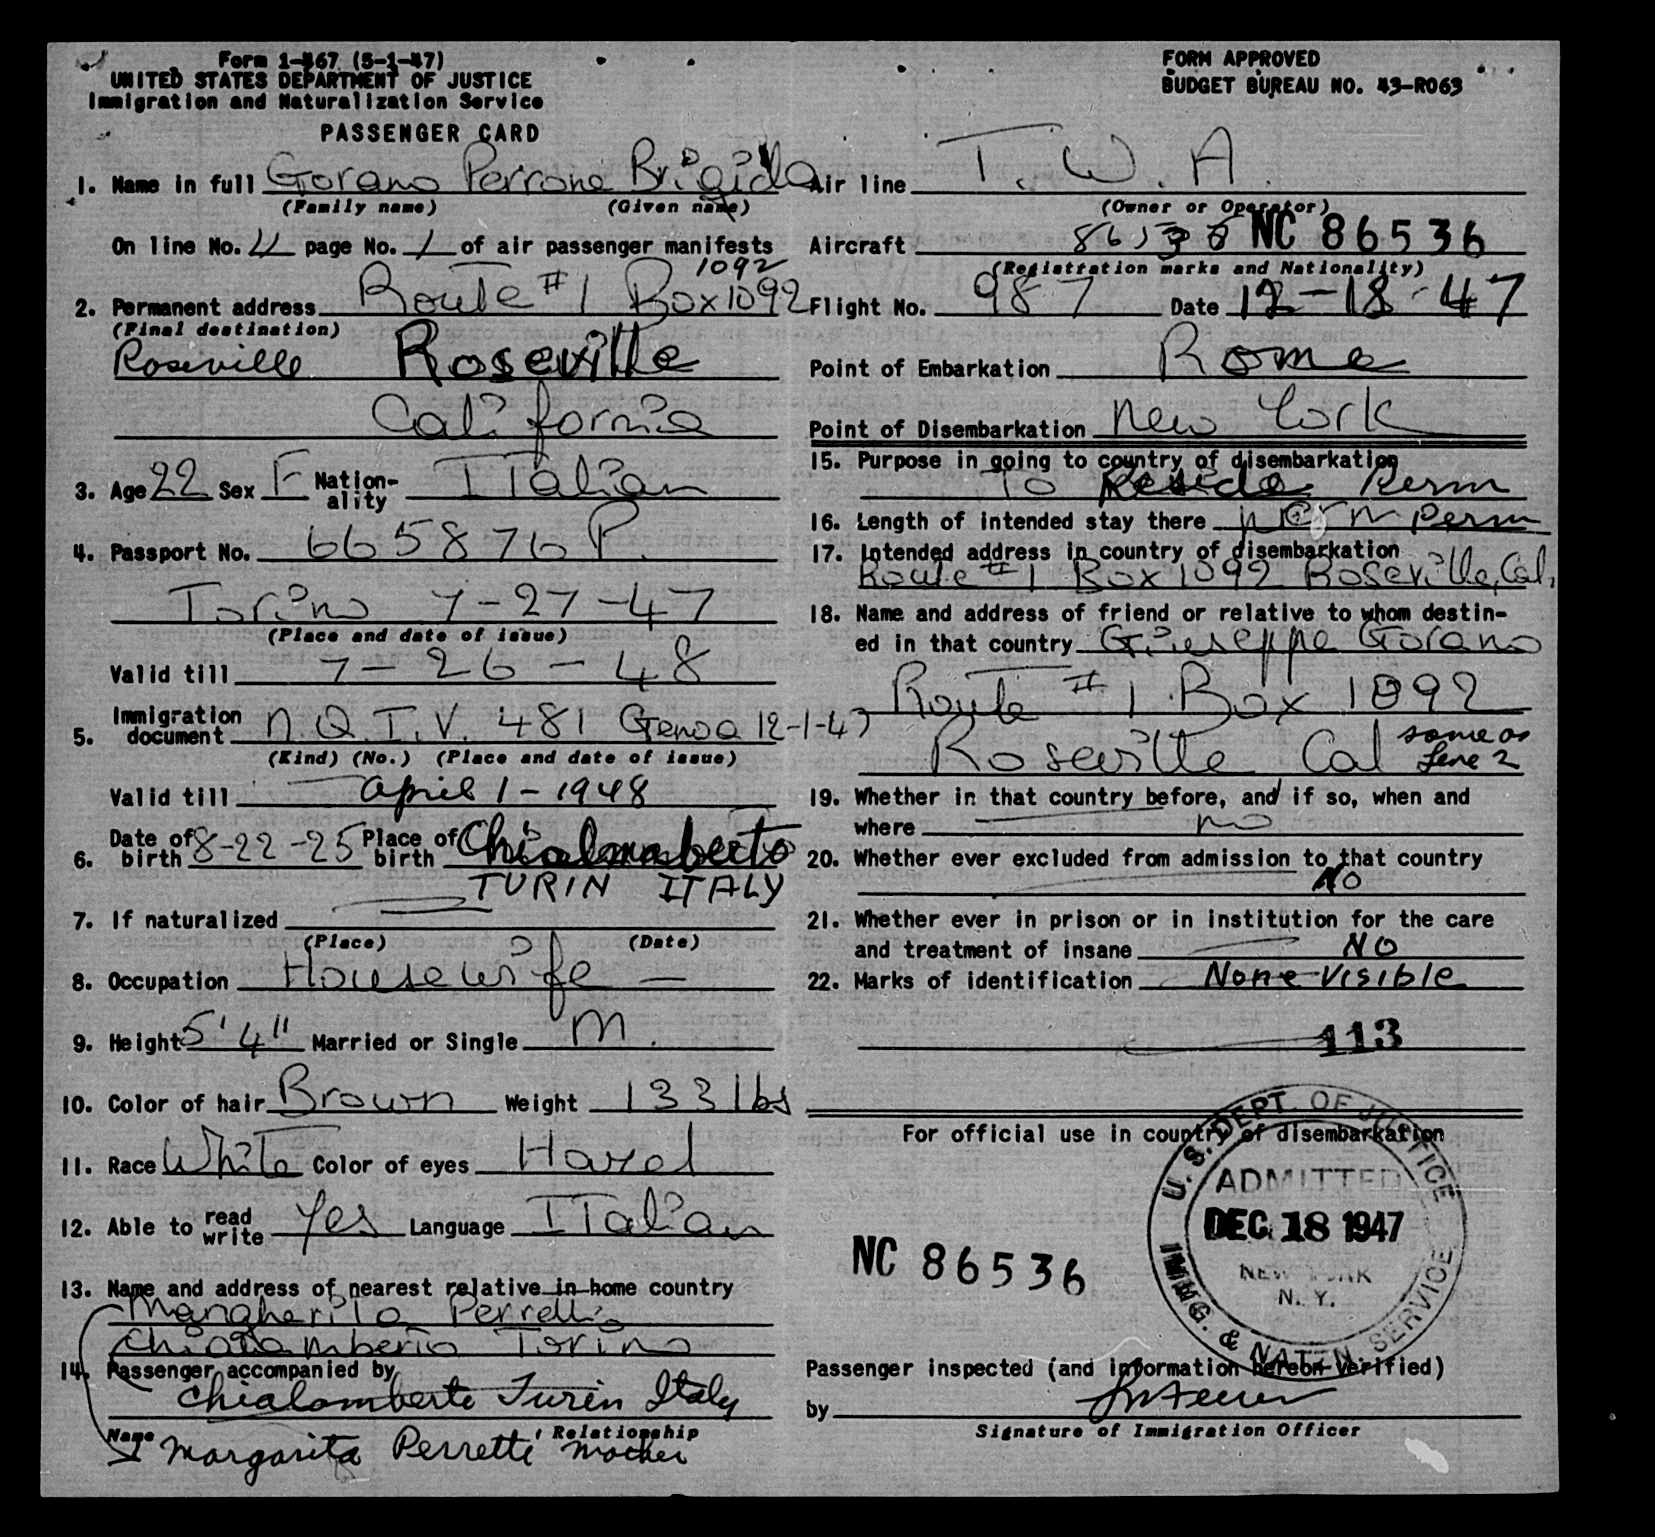 Form I-467 (5-1-47)
UNITED STATES DEPARTMENT OF JUSTICE
Immigration and Naturalization Service
PASSENGER CARD
FORM APPROVED
BUDGET BUREAU NO. 43-R063
1. Name in full Gorano Perrone Brigida
(Family name) (Given name)
On line No. 4 page No. 1 of air passenger manifests
1092
2. Permanent address Route #1 Box 1092
(Final destination)
Roseville Roseville
California
3. Age 22 Sex F Nation-ality Italian
4. Passport No. 665876 P.
Torino 7-27-47
(Place and date of issue)
Valid till 7-26-48
5. Immigration document N.Q.I.V. 481 Genoa 12-1-47
(Kind) (No.) (Place and date of issue)
Valid till April 1-1948
6. Date of birth 8-22-25 Place of birth Chialamberto
TURIN ITALY
7. If naturalized
(Place) (Date)
8. Occupation Housewife —
9. Height 5'4" Married or Single M.
10. Color of hair Brown Weight 133 lbs
11. Race White Color of eyes Hazel
12. Able to read write Yes Language Italian
13. Name and address of nearest relative in home country
Mangherita Perretti
Chialamberto Torino
14. Passenger accompanied by
Chialamberto Turin Italy
Name Relationship
Margarita Perretti Mother
Air line T.W.A.
(Owner or Operator)
Aircraft 86536 NC 86536
(Registration marks and Nationality)
Flight No. 987 Date 12-18-47
Point of Embarkation Rome
Point of Disembarkation New York
15. Purpose in going to country of disembarkation
To Reside Perm
16. Length of intended stay there perm perm
17. Intended address in country of disembarkation
Route #1 Box 1092 Roseville, Cal.
18. Name and address of friend or relative to whom destin-
ed in that country Giuseppe Gorano
Route #1 Box 1092
Roseville Cal same as Line 2
19. Whether in that country before, and if so, when and
where no
20. Whether ever excluded from admission to that country
NO
21. Whether ever in prison or in institution for the care
and treatment of insane NO
22. Marks of identification None Visible
113
For official use in country of disembarkation
U.S. DEPT. OF JUSTICE
ADMITTED
DEC 18 1947
NEW YORK
N. Y.
IMMG. & NATZN. SERVICE
NC 86536
Passenger inspected (and information hereon verified)
by
Signature of Immigration Officer